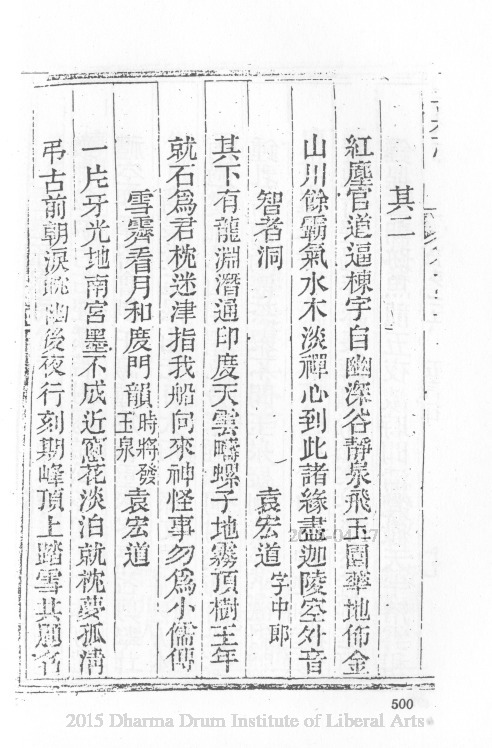 其二
紅塵官道逼棟宇自幽深谷靜泉飛玉園華地佈金
山川餘霸氣水木淡禪心到此諸緣盡迦陵空外音
智者洞 袁宏道 字中郎
其下有龍淵潛通印度天雲疇螺子地霧頂樹王年
就石爲君枕迷津指我船向來神怪事勿爲小儒傳
雪霽看月和度門韻 時將發玉泉 袁宏道
一片牙光地南宮墨不成近窓花淡泊就枕夢孤淸
弔古前朝淚 幽後夜行刻期峰頂上踏雪共題名
500
2015 Dharma Drum Institute of Liberal Arts